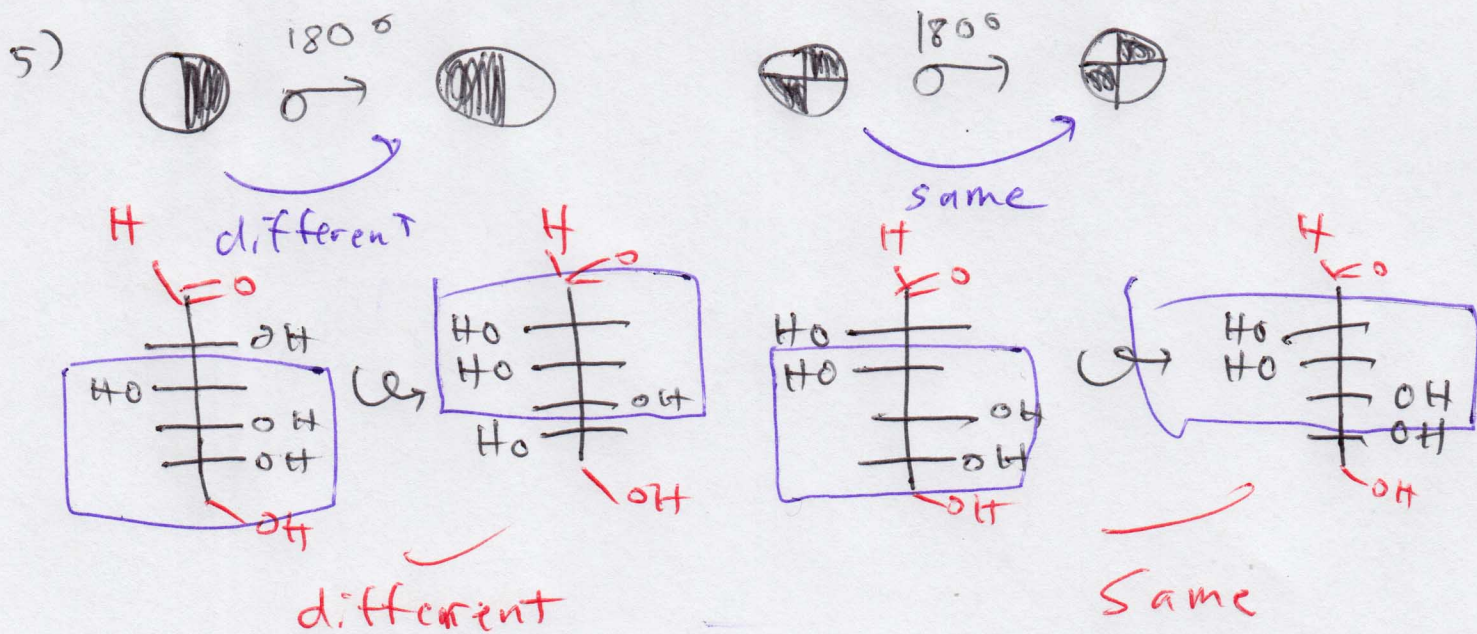 5)
180°
180°
different
same
H
O
OH
HO
OH
OH
OH
H
O
HO
HO
OH
HO
OH
H
O
HO
HO
OH
OH
OH
H
O
HO
HO
OH
OH
OH
different
Same